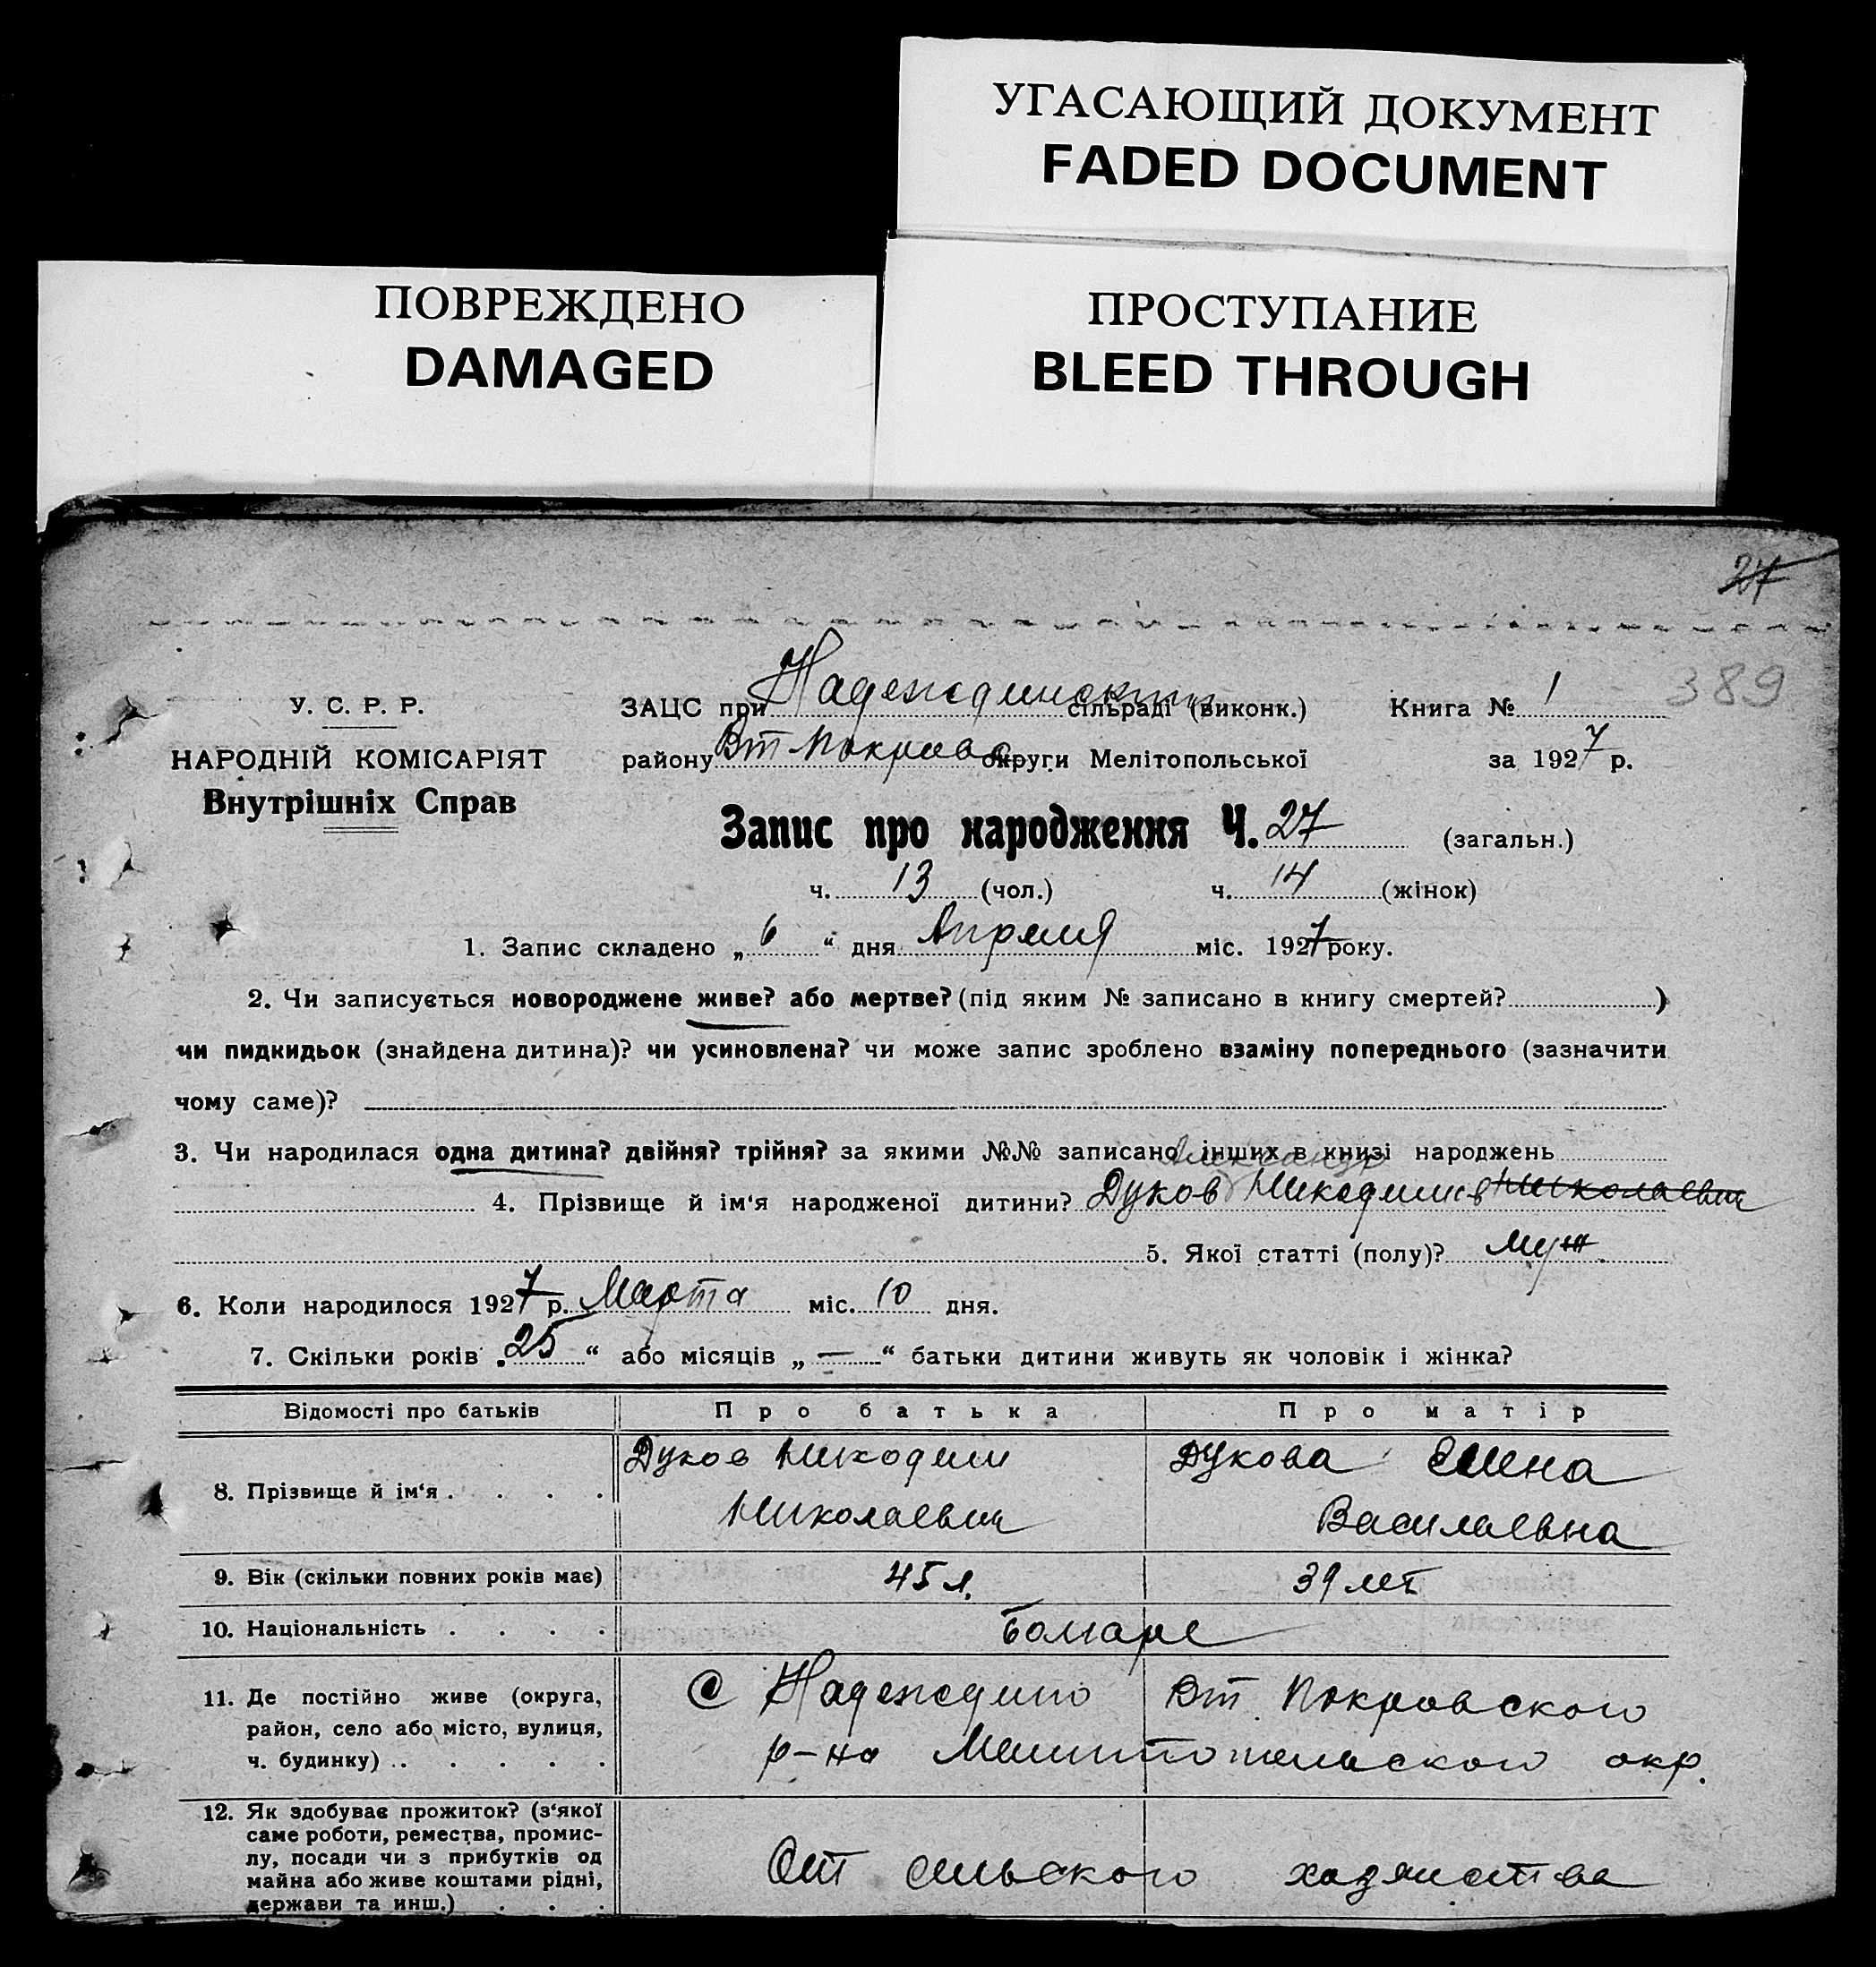 УГАСАЮЩИЙ ДОКУМЕНТ
FADED DOCUMENT
ПОВРЕЖДЕНО
DAMAGED
ПРОСТУПАНИЕ
BLEED THROUGH
27
389
У. С. Р. Р.
НАРОДНІЙ КОМІСАРІЯТ
Внутрішніх Справ
ЗАЦС при Надеждинский сільраді (виконк.) Книга № 1
району Вт Покровс округи Мелітопольської за 1927 р.
Запис про народження Ч. 27 (загальн.)
ч. 13 (чол.) ч. 14 (жінок)
1. Запис складено „ 6 “ дня Апреля міс. 1927 року.
2. Чи записується новороджене живе? або мертве? (під яким № записано в книгу смертей? )
чи пидкидьок (знайдена дитина)? чи усиновлена? чи може запис зроблено взаміну попереднього (зазначити
чому саме)?
3. Чи народилася одна дитина? двійня? трійня? за якими №№ записано інших в книзі народжень
Александр
4. Прізвище й ім'я народженої дитини? Дуков Никодимов Николаевич
5. Якої статті (полу)? муж
6. Коли народилося 1927 р. Марта міс. 10 дня.
7. Скільки років „ 25 “ або місяців „ — “ батьки дитини живуть як чоловік і жінка?
Відомості про батьків Про батька Про матір
8. Прізвище й ім'я . . . . Дуков Никодим Николаевич Дукова Елена Василевна
9. Вік (скільки повних років має) 45 л. 39 лет
10. Національність . . . . Болгаре
11. Де постійно живе (округа,
район, село або місто, вулиця,
ч. будинку) . . . . . .
С Надеждино Вт. Покровского
р-на Мелитопольского окр.
12. Як здобуває прожиток? (з'якої
саме роботи, ремества, промис-
лу, посади чи з прибутків од
майна або живе коштами рідні,
держави та инш.) . . .
От сельского хозяйства